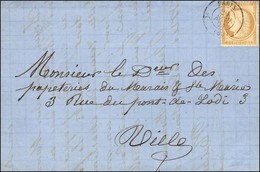 PARIS
Monsieur le Deur Des
papeteries du Marais & Ste Marie
3 Rue du pont-de-Lodi 3
Ville